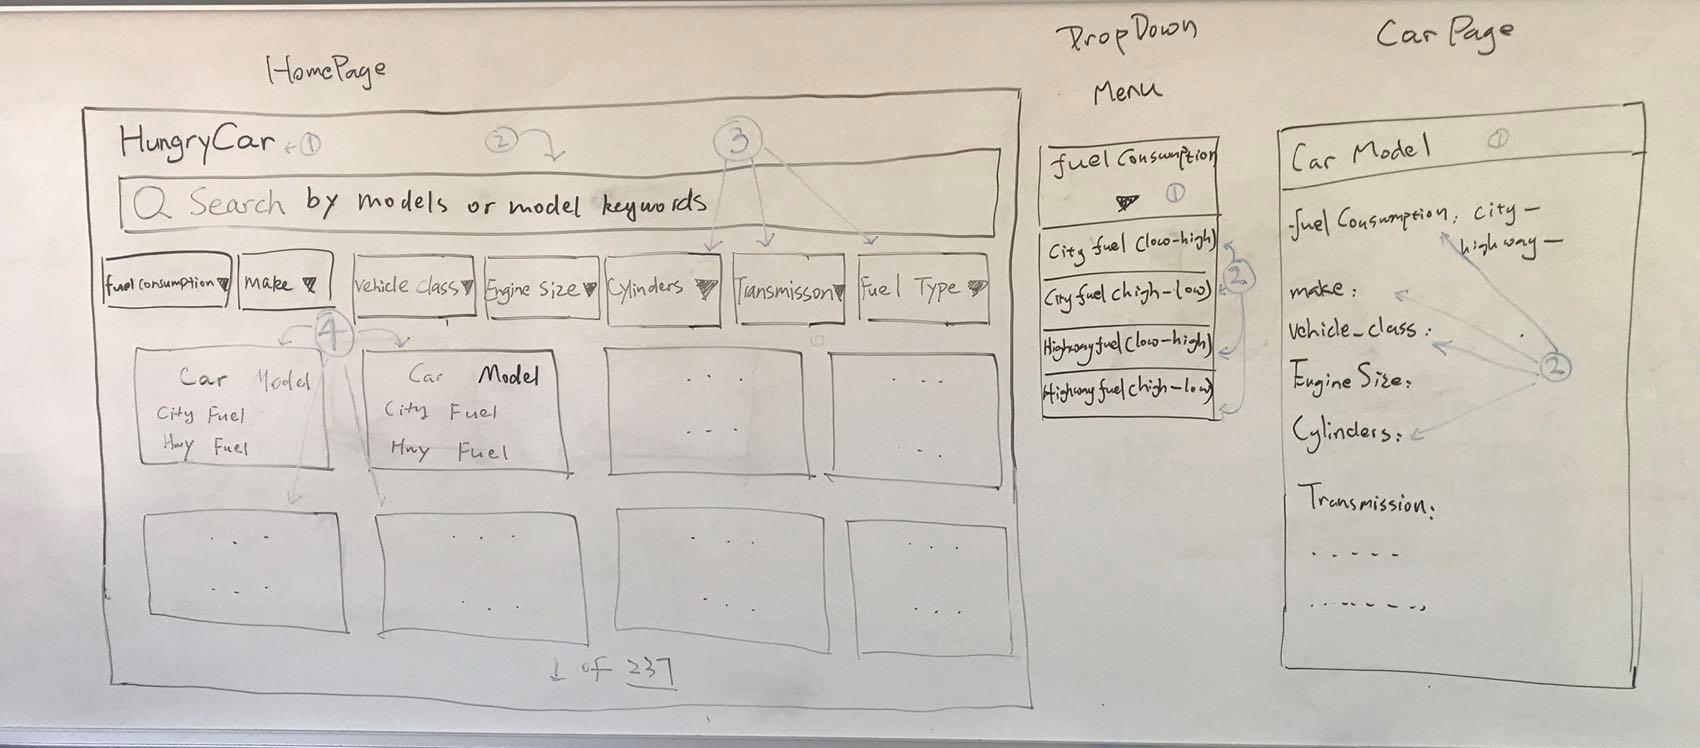 HomePage
HungryCar ①
②
③
Search by models or model keywords
fuel consumption
make
Vehicle class
Engine Size
Cylinders
Transmisson
Fuel Type
④
Car Model
City Fuel
Hwy Fuel
Car Model
City Fuel
Hwy Fuel
1 of 237
DropDown
Menu
fuel Consumption
①
City fuel (low-high)
City fuel (high-low)
Highway fuel (low-high)
Highway fuel (high-low)
②
Car Page
Car Model ①
fuel Consumption: city -
highway -
make:
vehicle_class:
②
Engine Size:
Cylinders:
Transmission: